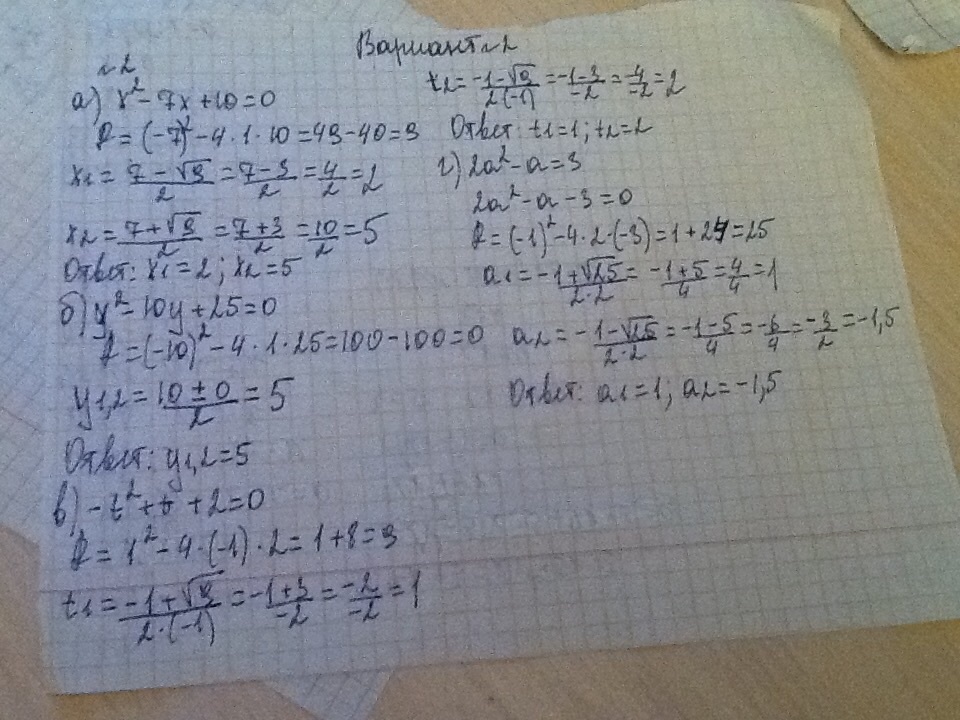 Вариант №2
№2
а) x² - 7x + 10 = 0
D = (-7)² - 4·1·10 = 49 - 40 = 9
x1 = (7 - √9)/2 = (7 - 3)/2 = 4/2 = 2
x2 = (7 + √9)/2 = (7 + 3)/2 = 10/2 = 5
Ответ: x1 = 2; x2 = 5
б) y² - 10y + 25 = 0
D = (-10)² - 4·1·25 = 100 - 100 = 0
y1,2 = (10 ± 0)/2 = 5
Ответ: y1,2 = 5
в) -t² + t + 2 = 0
D = 1² - 4·(-1)·2 = 1 + 8 = 9
t1 = (-1 + √9)/(2·(-1)) = (-1 + 3)/(-2) = (-2)/(-2) = 1
t2 = (-1 - √9)/(2(-1)) = (-1 - 3)/(-2) = (-4)/(-2) = 2
Ответ: t1 = 1; t2 = 2
г) 2a² - a = 3
2a² - a - 3 = 0
D = (-1)² - 4·2·(-3) = 1 + 24 = 25
a1 = (-1 + √25)/(2·2) = (-1 + 5)/4 = 4/4 = 1
a2 = (-1 - √25)/(2·2) = (-1 - 5)/4 = (-6)/4 = (-3)/2 = -1,5
Ответ: a1 = 1; a2 = -1,5